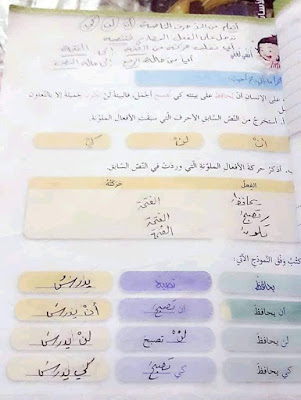 أتعلم من الأحرف الناصبة أن لن كي
تدخل على الفعل المضارع فتنصبه
أي تتغير حركته من الضمة إلى الفتحة
أي من حالة الرفع إلى حالة النصب
على الإنسان أن يحافظ على بيئته كي تصبح أجمل، فالبيئة لن تكون جميلة إلا بالتعاون
أستخرج من النص السابق الأحرف التي سبقت الأفعال الملونة.
أن لن كي
أذكر حركة الأفعال الملونة التي وردت في النص السابق.
الفعل حركته
يحافظ الفتحة
تصبح الفتحة
تكون الفتحة
وفق النموذج الآتي:
يحافظ تصبح يدرس
أن يحافظ أن تصبح أن يدرس
لن يحافظ لن تصبح لن يدرس
كي يحافظ كي تصبح كي يدرس